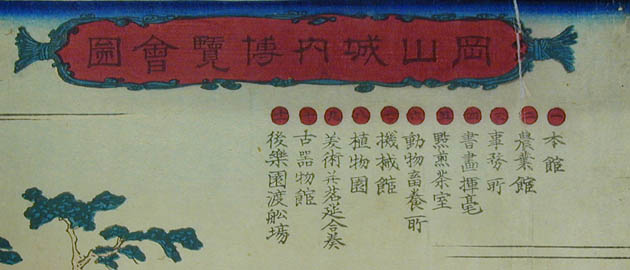 岡山城内博覽會圖
一 本館
二 農業館
三 事務所
四 書畫揮毫
五 點煎茶室
六 動物畜養所
七 機械館
八 植物園
九 美術并茗莚合奏
十 古器物館
後樂園渡舩場